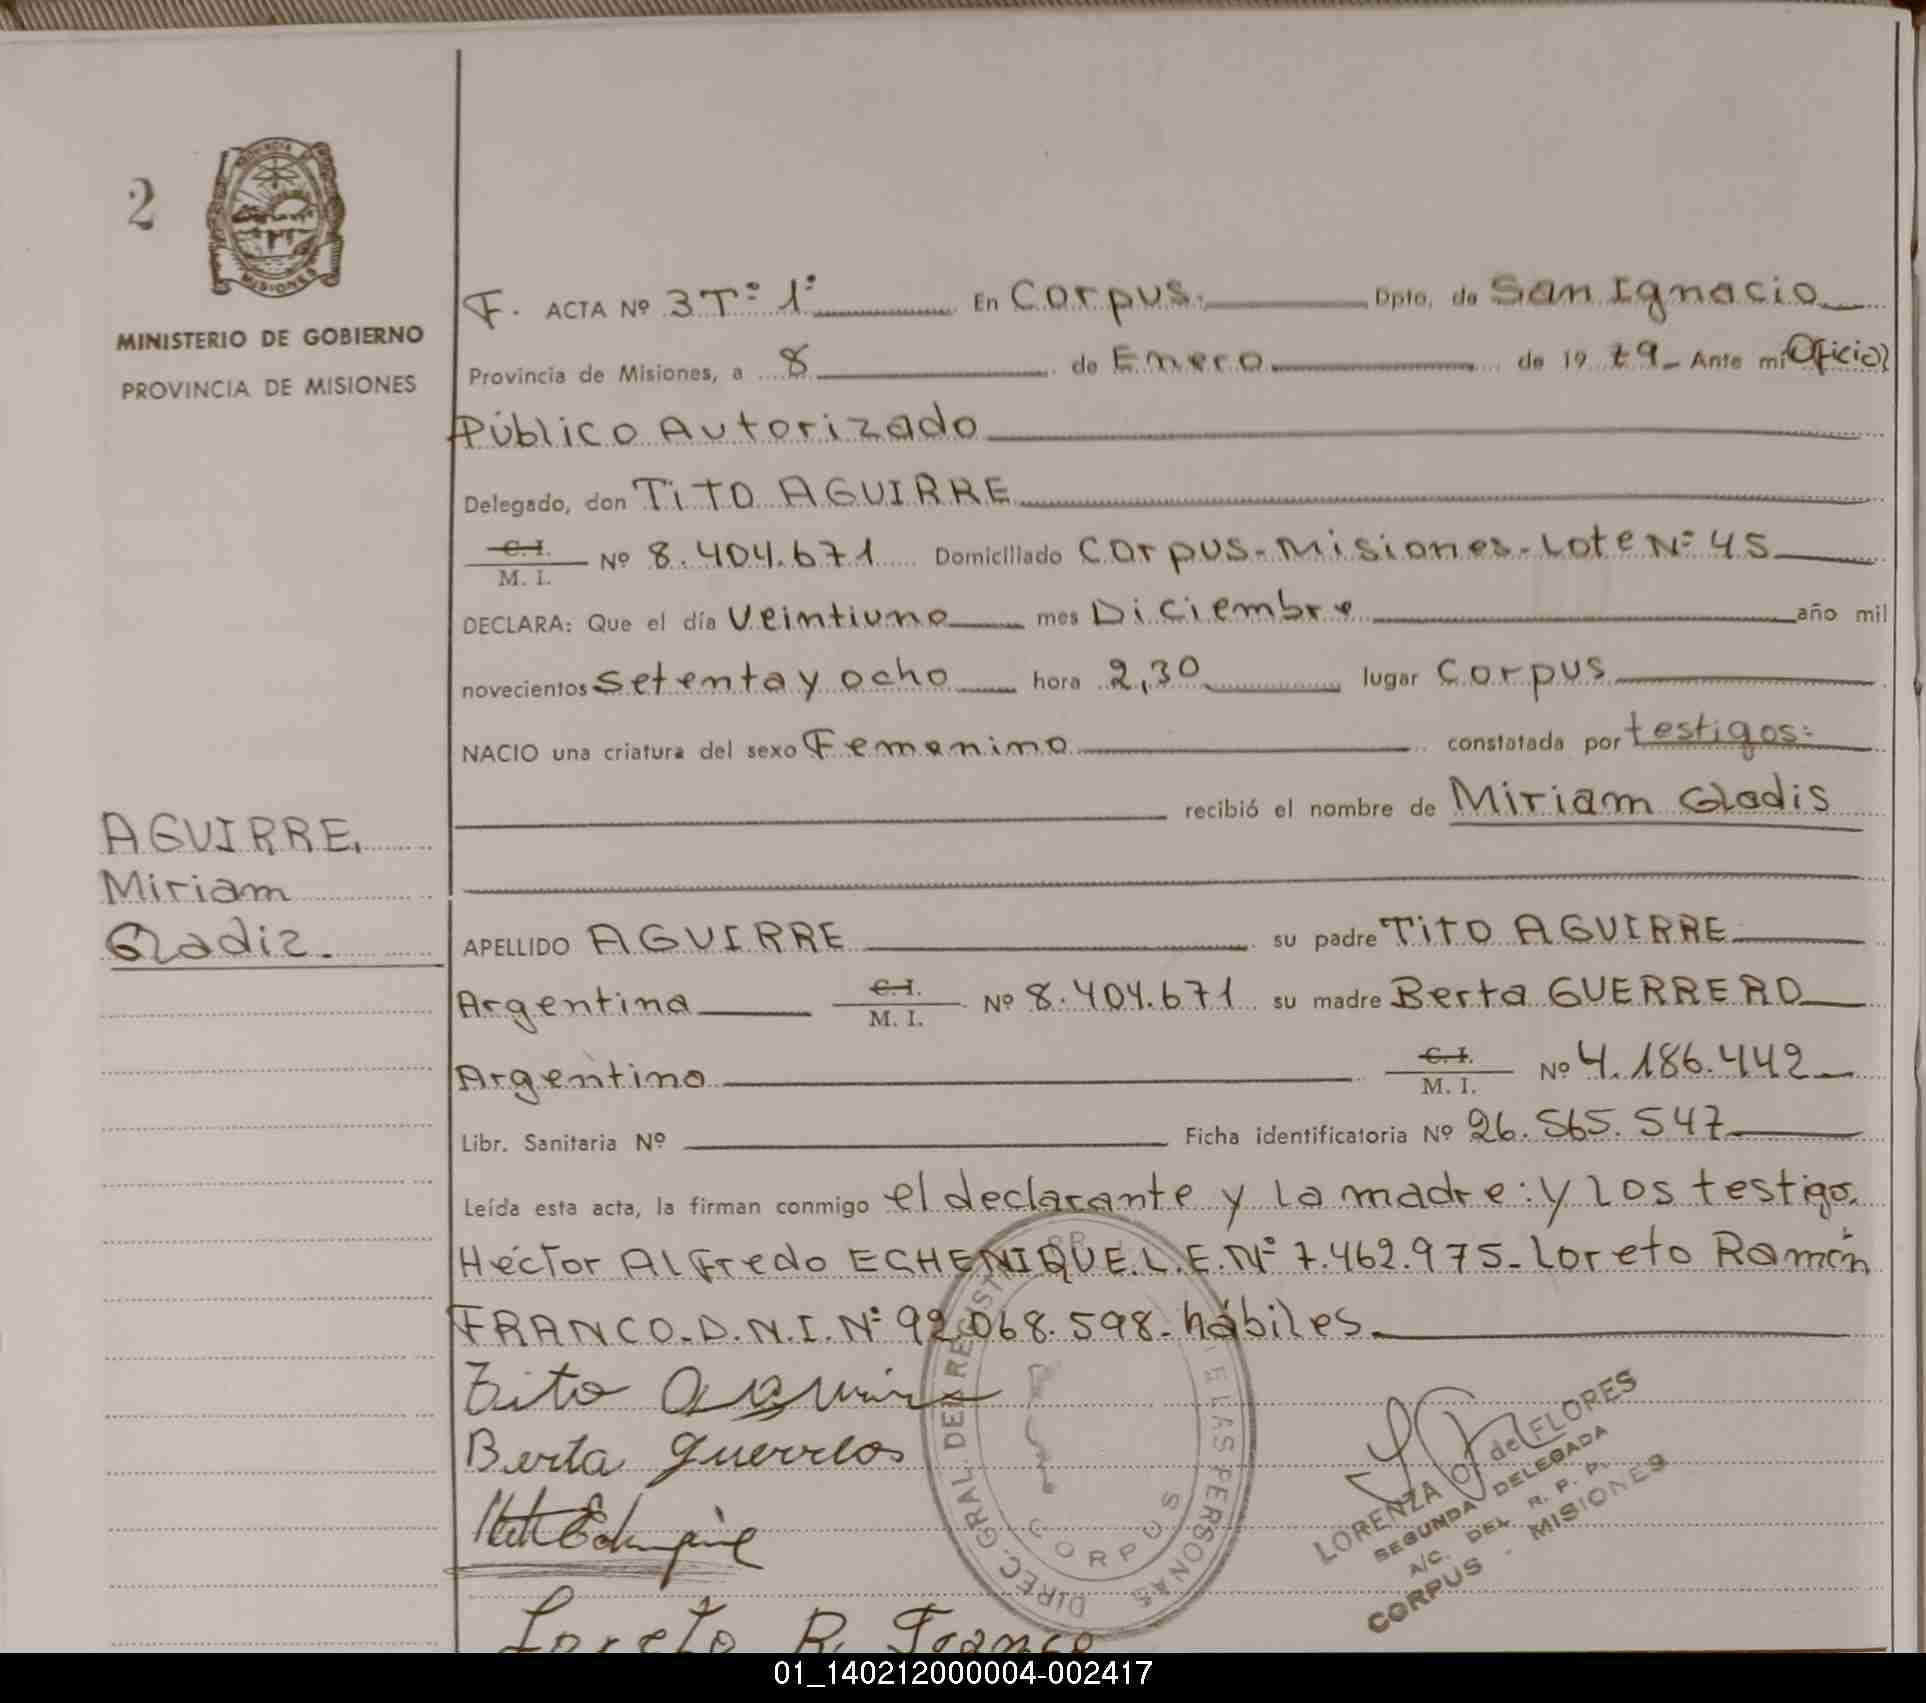 2
MINISTERIO DE GOBIERNO
PROVINCIA DE MISIONES
AGUIRRE,
Miriam
Gladiz.
F. ACTA Nº 3 Tº 1º En Corpus. Dpto. de San Ignacio
Provincia de Misiones, a 8 de Enero de 19 79 Ante mi Oficial
Público Autorizado
Delegado, don TiTO AGUIRRE
C.I. / M. I. Nº 8.404.671 Domiciliado Corpus-Misiones-Lote Nº 45
DECLARA: Que el día Veintiuno mes Diciembre año mil
novecientos setenta y ocho hora 2,30 lugar Corpus
NACIO una criatura del sexo Femenino constatada por testigos:
recibió el nombre de Miriam Gladis
APELLIDO AGUIRRE su padre TiTO AGUIRRE
Argentina C.I. / M. I. Nº 8.404.671 su madre Berta GUERRERO
Argentino C.I. / M. I. Nº 4.186.442
Libr. Sanitaria Nº Ficha identificatoria Nº 26.565.547
Leída esta acta, la firman conmigo el declarante y la madre: y los testigo.
Héctor Alfredo ECHENIQUE.L.E.Nº 7.462.975-Loreto Ramón
FRANCO.D.N.I.Nº 92.068.598-hábiles
Tito Aguirre
Berta Guerrero
Loreto R. Franco
DIREC. GRAL. DEL REGIST
E LAS PERSONAS
CORPUS
LORENZA O de FLORES
SEGUNDA DELEGADA
A/C. DEL R. P. P.
CORPUS - MISIONES
01_140212000004-002417